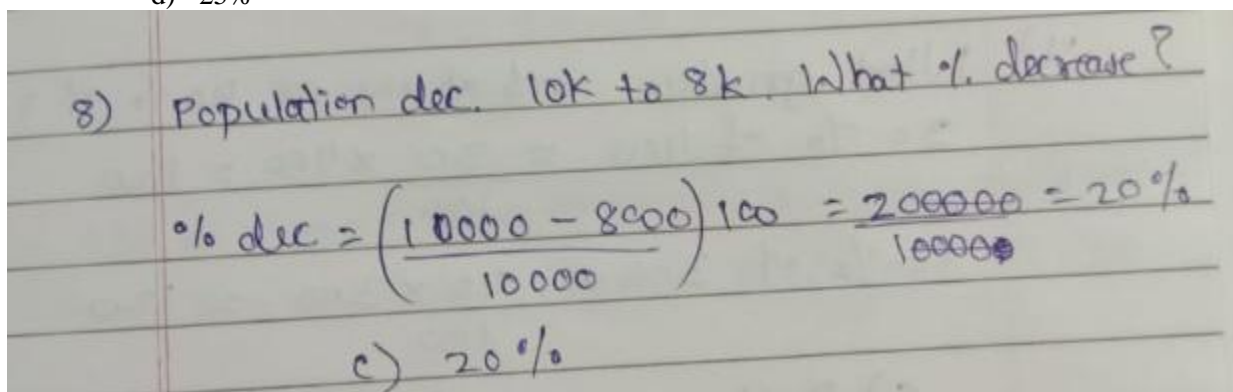 d) 25%
8) Population dec. 10k to 8k. What % decrease?
% dec = (10000 - 8000 / 10000) 100 = 200000 / 10000 = 20%
c) 20%